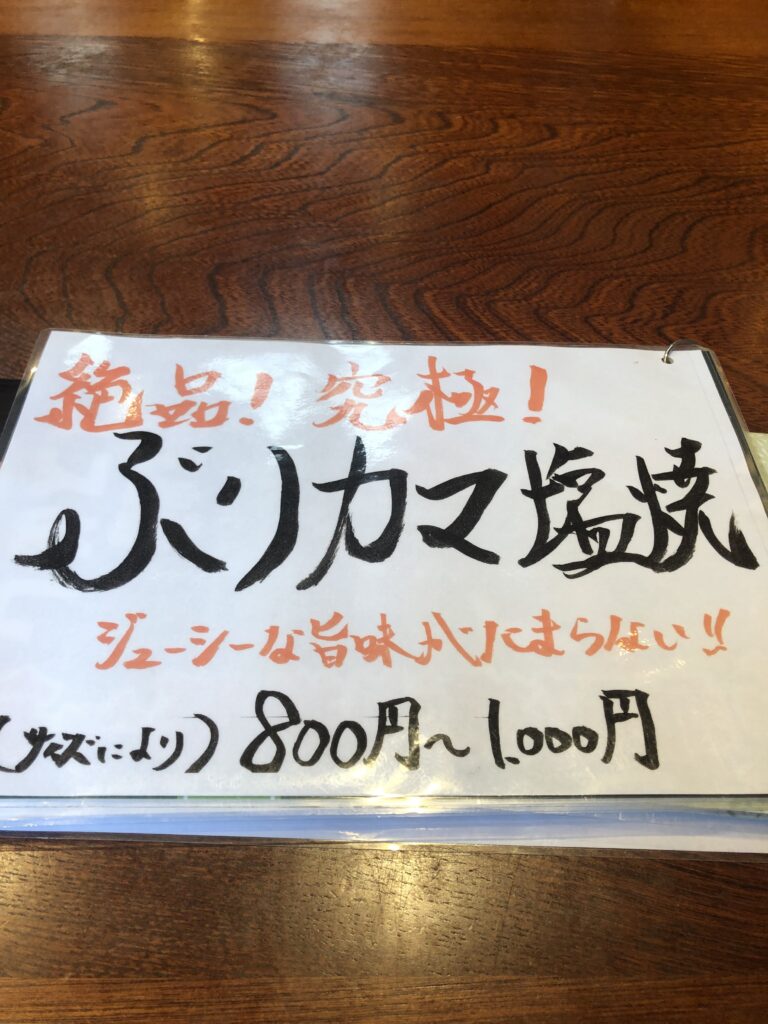 絶品！究極！
ぶりカマ塩焼
ジューシーな旨味がたまらない!!
(サイズにより)800円〜1.000円